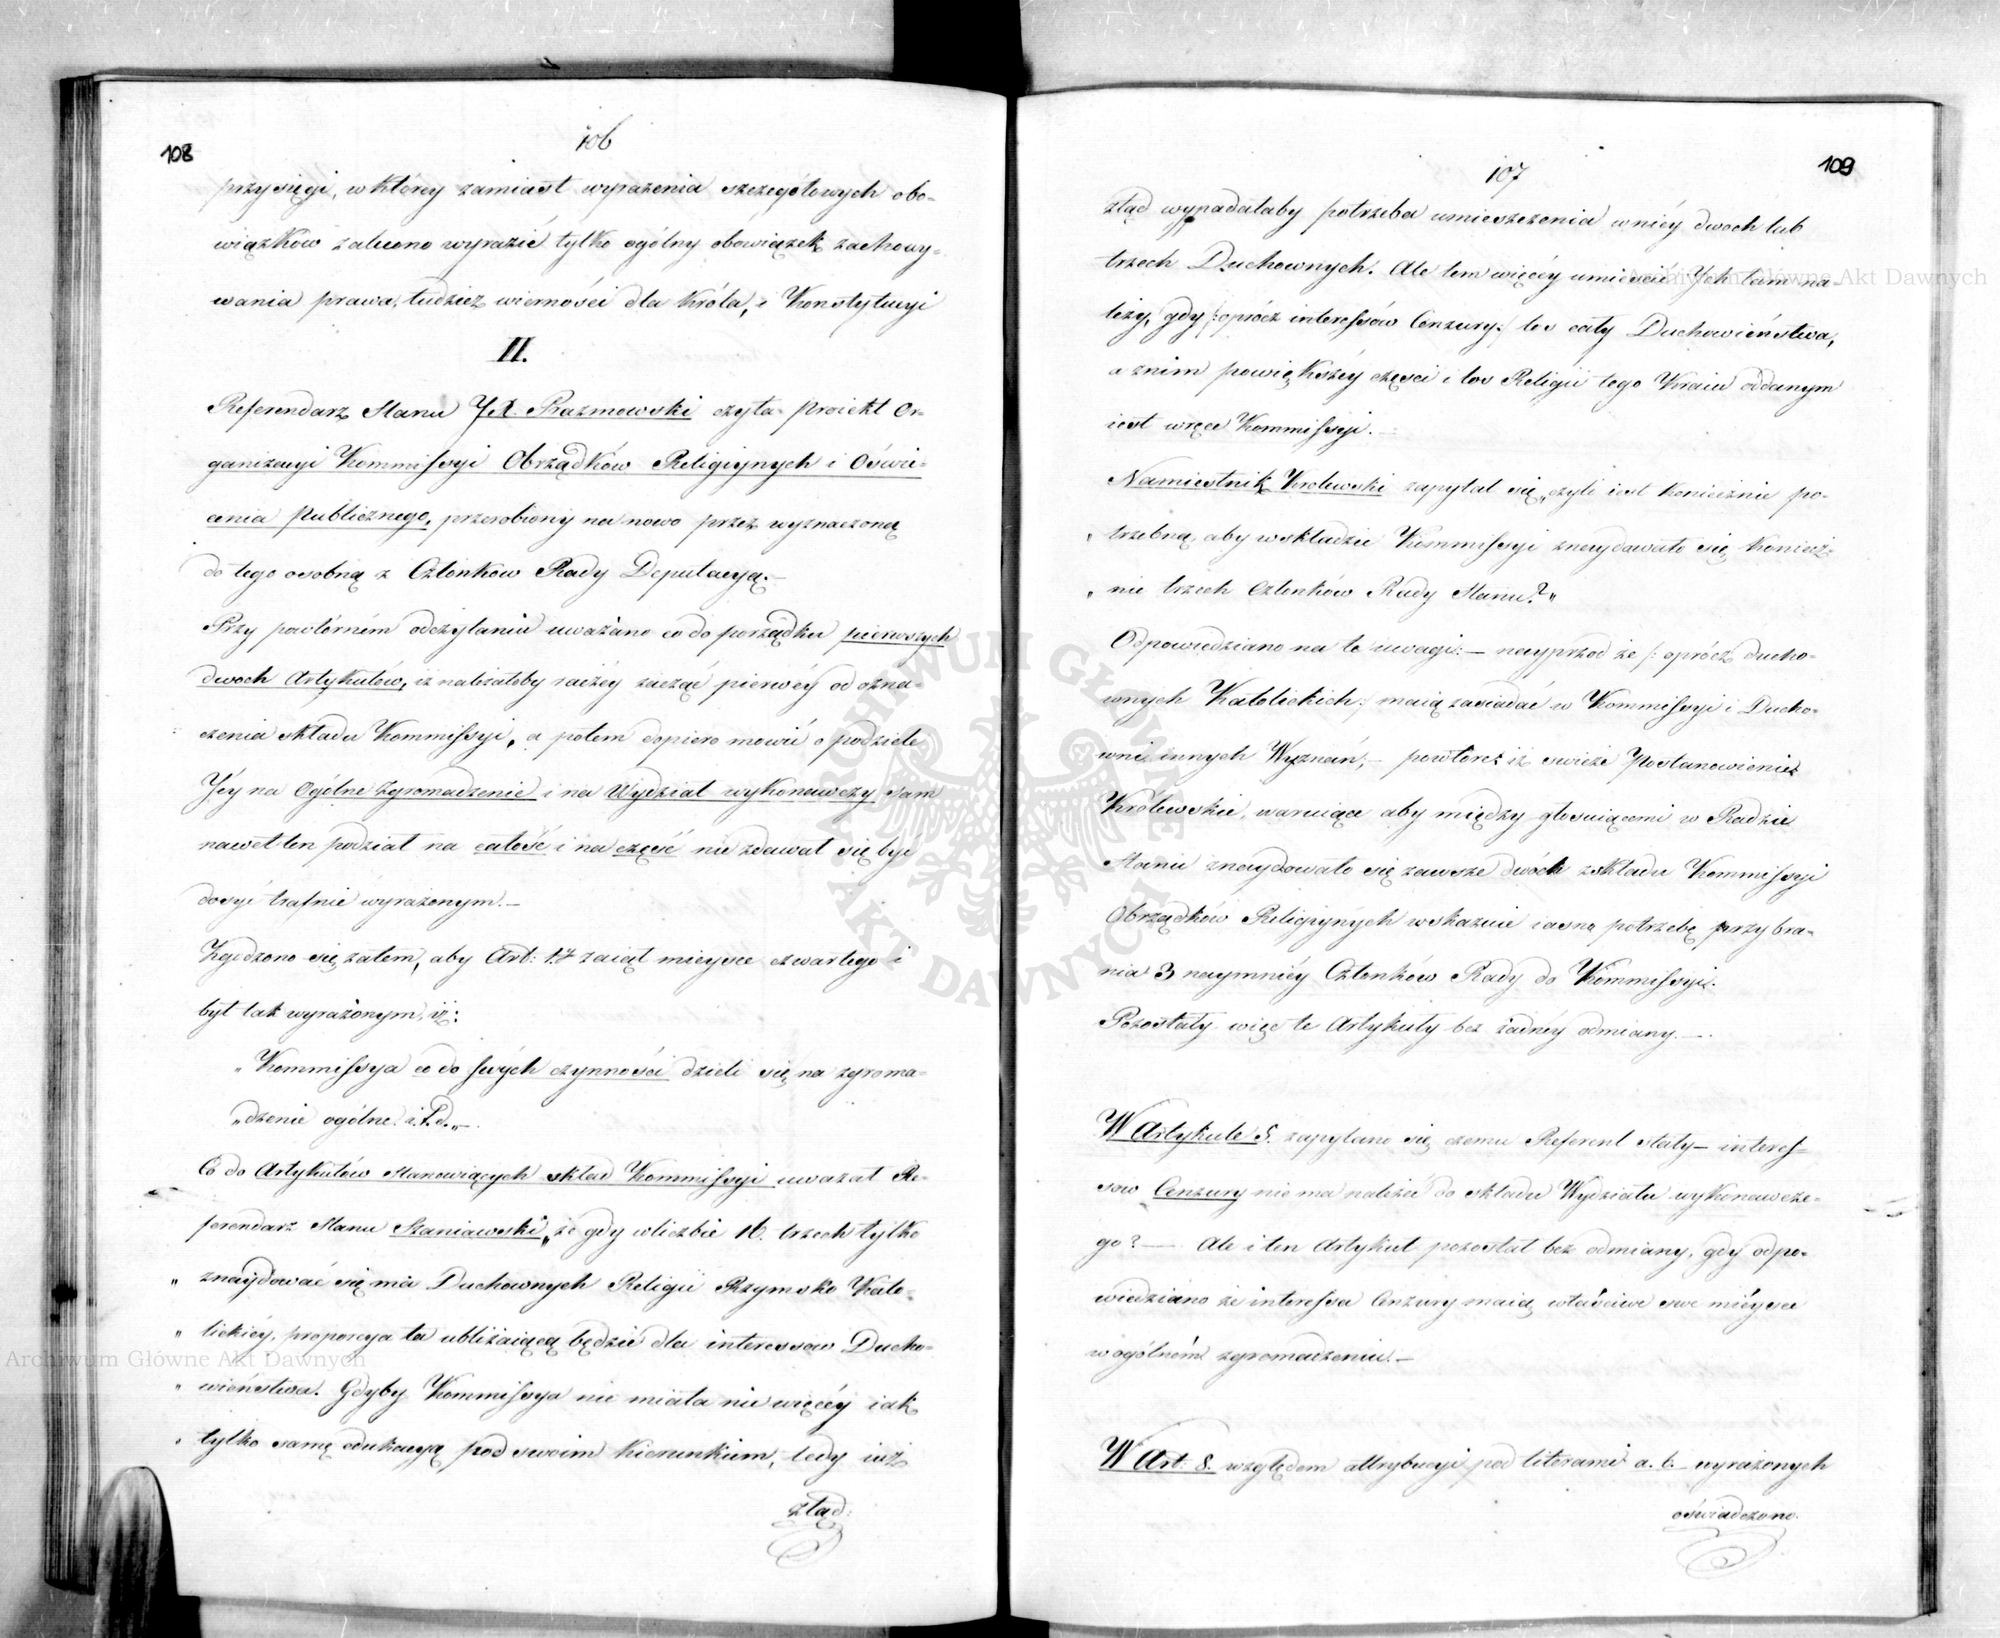 108
106
przysięgi, w którey zamiast wyrażenia szczegółowych obo-
wiązków zalecono wyrazić tylko ogólny obowiązek zachowy-
wania prawa, tudzież wierności dla Króla, i Konstytucyi
II.
Referendarz Stanu JX. Prazmowski czyta proiekt Or-
ganizacyi Kommissyi Obrządków Religiynych i Oświe-
cenia Publicznego, przerobiony na nowo przez wyznaczoną
do tego osobną z Członków Rady Deputacyą.—
Przy powtórném odczytaniu uważano co do porządku pierwszych
dwoch Artykułów, iż należałoby raiźéy zacząć pierwéy od ozna-
czenia składu Kommissyi, a potem dopiero mówić o podziele
Jéy na Ogólne Zgromadzenie i na Wydział wykonawczy sam
nawet ten podział na całość i na część nie zdawał się być
dosyć trafnie wyrażonym.—
Zgodzono się zatem, aby Art: 17 zaiął mieysce czwartego i
był tak wyrażonym, iż:
„Kommissya co do swych czynności dzieli się na zgroma-
„dzenie ogólne i.t.d.„—
Co do Artykułów stanowiących skład Kommissyi uważał Re-
ferendarz Stanu Staniawski, „że gdy w liczbie 16. trzech tylko
„ znaydować się ma Duchownych Religii Rzymsko Kato-
„ lickiéy, proporcya ta ubliżaiącą będzie dla interessow Ducho-
„ wieństwa. Gdyby Kommissya nie miała nic więcéy iak
„ tylko samę edukacyą pod swoim kierunkiem, tedy iuż
ztąd
107
109
ztąd wypadałaby potrzeba umieszczenia w niéy dwoch lub
trzech Duchownych. Ale tem więcéy umieścić Ych tam na-
leży, gdy /:oprócz interessów Cenzury:/ los cały Duchowieństwa,
a z nim powiększéy części i los Religii tego Kraiu oddanym
iest w ręce Kommissyi.—
Namiestnik Krolewski zapytał się, „czyli iest koniecznie po-
„ trzebną, aby w składzie Kommissyi znaydowało się koniecz-
„ nie trzech Członków Rady Stanu?„
Odpowiedziano na te uwagi:— nayprzod że /: oprócz ducho-
wnych Katolickich:/ maią zasiadać w Kommissyi i Ducho-
wni innych Wyznań,— powtóre iż świeże Postanowienie
Królewskie, waruiące aby między głosuiącemi w Radzie
Stanu znaydowało się zawsze dwóch z składu Kommissyi
Obrządków Religiynych wskazuie iasno potrzebę przybra-
nia 3 naymniéy Członków Rady do Kommissyi.
Pozostały więc te Artykuły bez żadnéy odmiany.—
W Artykule 5. zapytano się czemu Referent stały— interes-
sow Cenzury nie ma należeć do składu Wydziału wykonawcze-
go?— Ale i ten Artykuł pozostał bez odmiany, gdy odpo-
wiedziano że interessa Cenzury maią właściwe swe mieysce
w ogólném zgromadzeniu.—
W Art: 8. względem attrybucyi pod literami a. b. wyrażonych
oświadczono.
Archiwum Główne Akt Dawnych
Archiwum Główne Akt Dawnych
ARCHIWUM GŁÓWNE AKT DAWNYCH